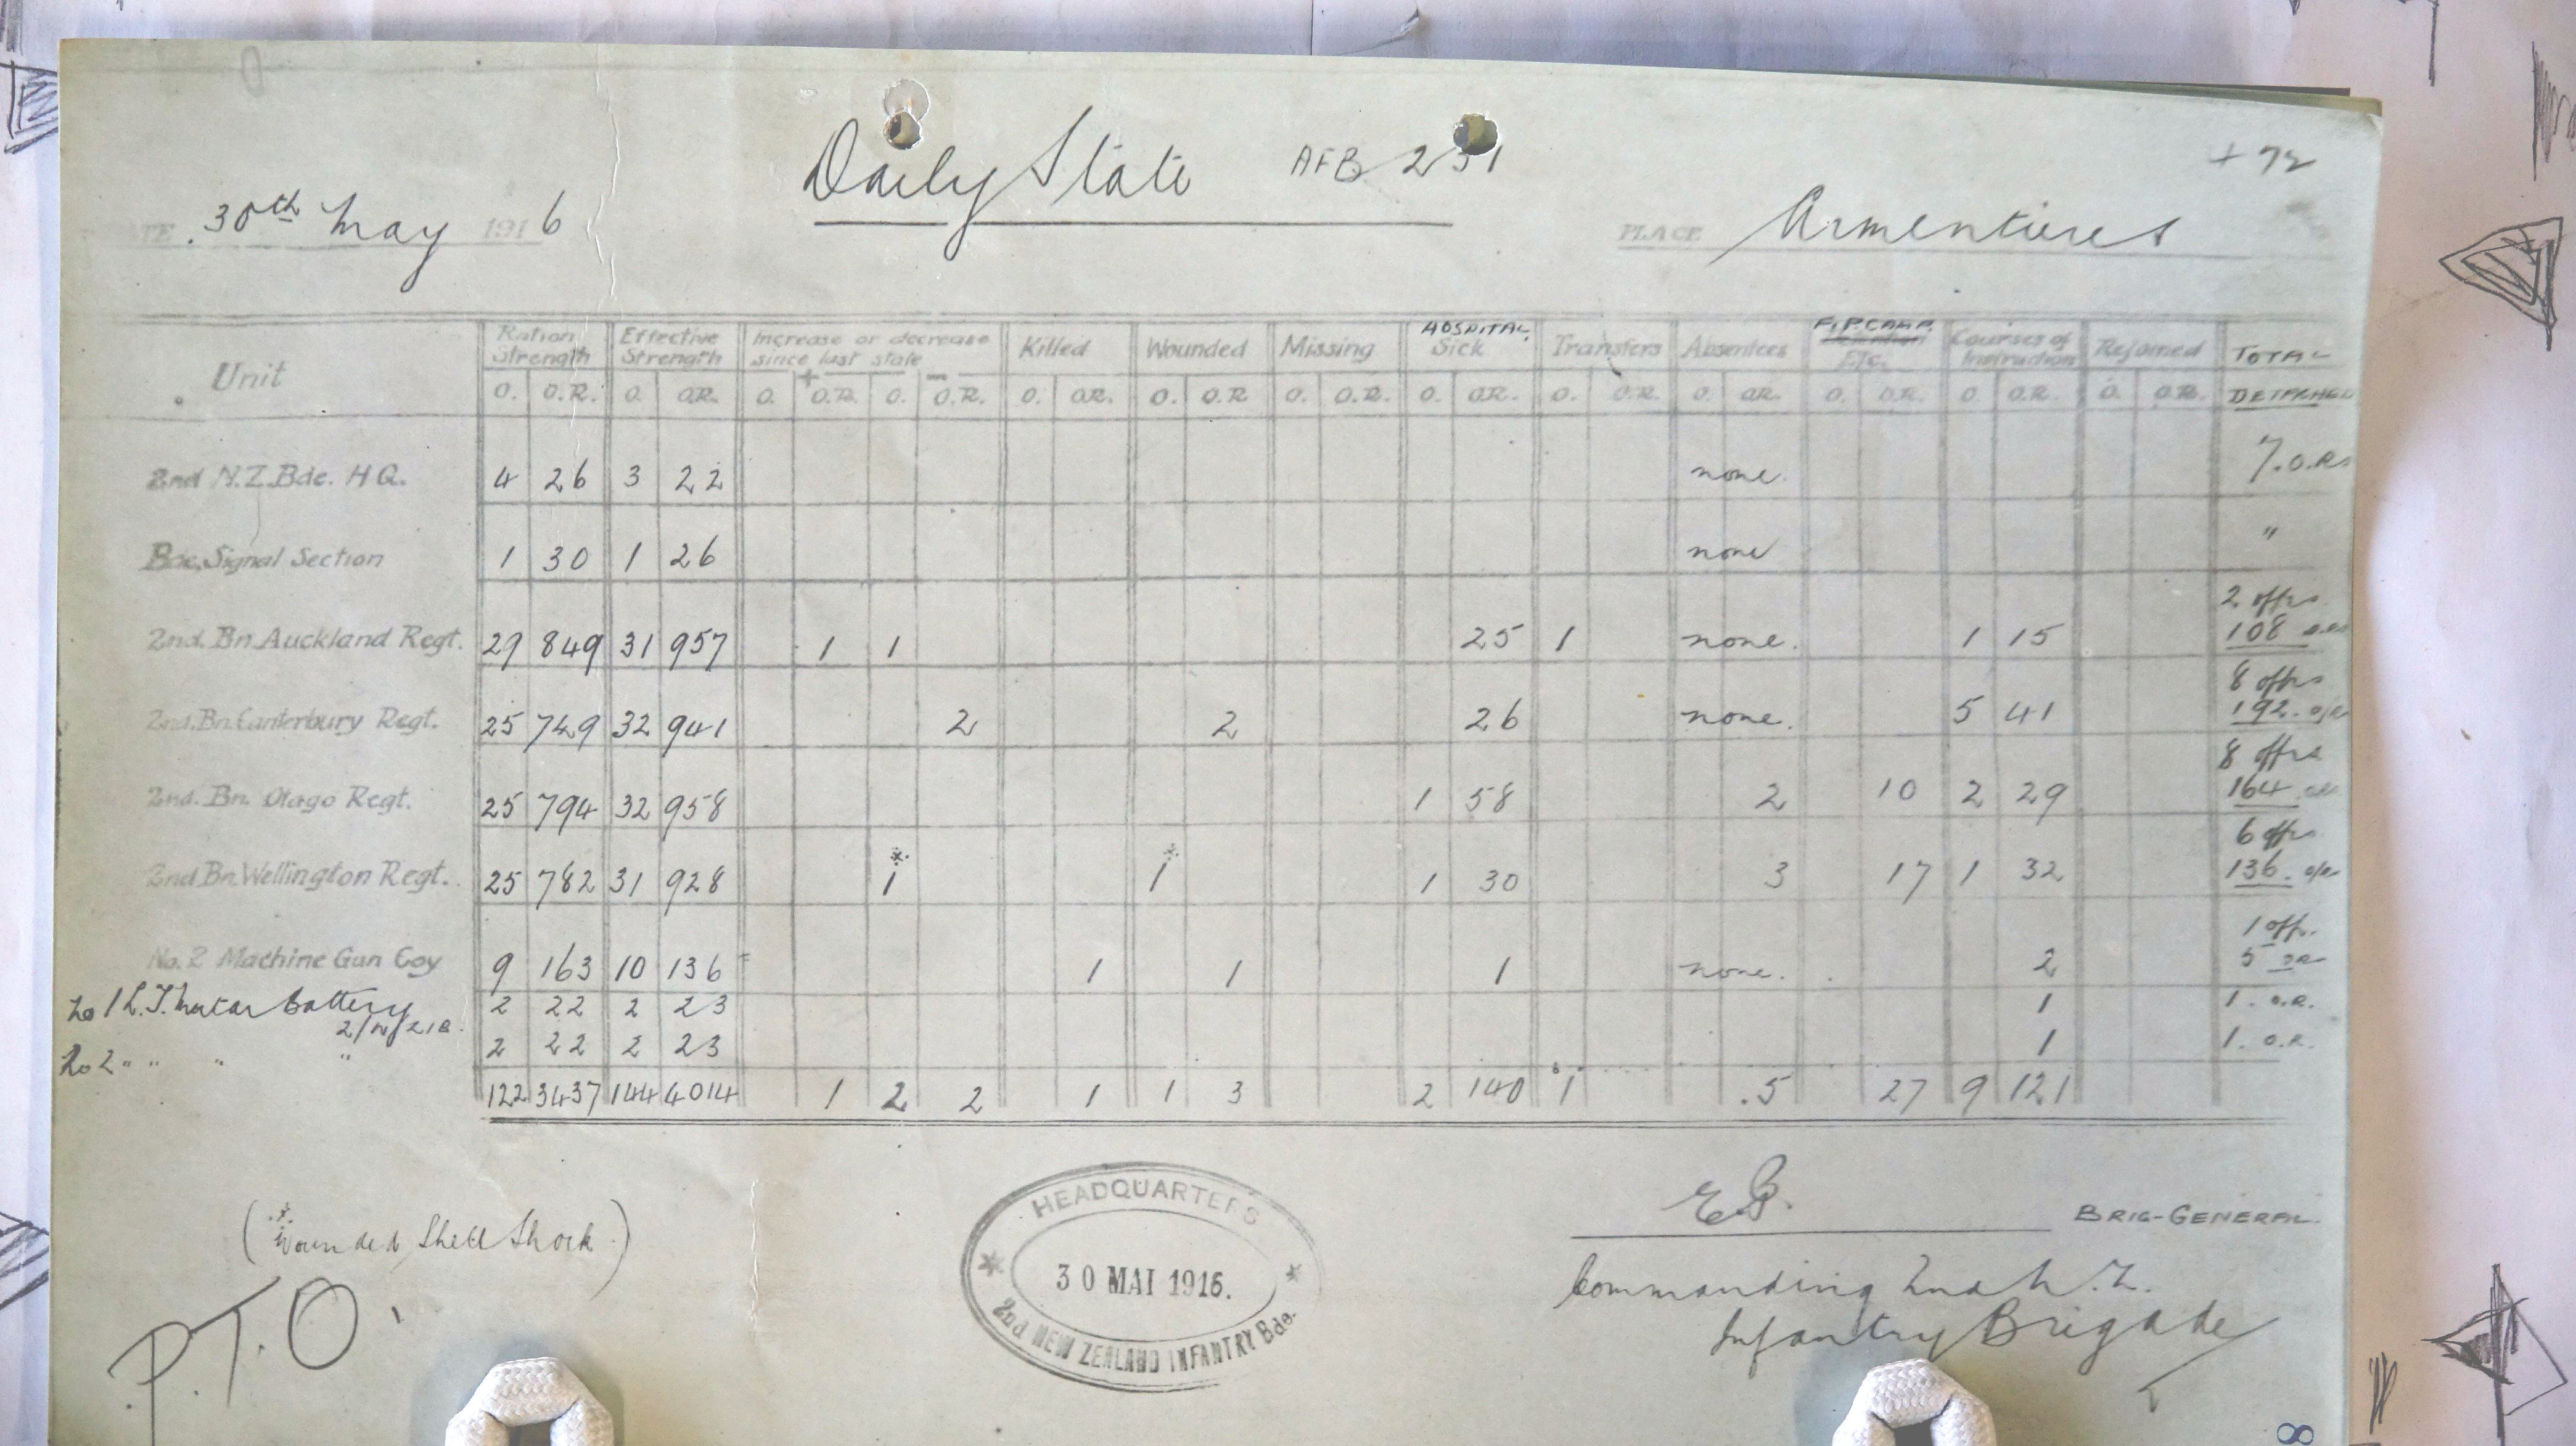 + 72
Daily State AFB 251
DATE 30th May 1916
PLACE Armentieres
Unit Ration Strength Effective Strength Increase or decrease since last state + - Killed Wounded Missing HOSPITAL Sick Transfers Absentees F.P. CAMP. Etc. Courses of Instruction Rejoined TOTAL DETACHED
O. O.R. O. O.R. O. O.R. O. O.R. O. O.R. O. O.R. O. O.R. O. O.R. O. O.R. O. O.R. O. O.R. O. O.R. O. O.R.
2nd N.Z. Bde. H Q. 4 26 3 22 none. 7. O.Rs
Bde. Signal Section 1 30 1 26 none "
2nd. Bn. Auckland Regt. 29 849 31 957 1 1 25 1 none. 1 15 2 offrs 108
2nd. Bn. Canterbury Regt. 25 749 32 941 2 2 26 none. 5 41 8 offrs 192.
2nd. Bn. Otago Regt. 25 794 32 958 1 58 2 10 2 29 8 offrs 164
2nd Bn. Wellington Regt. 25 782 31 928 * 1 * 1 1 30 3 17 1 32 6 offrs 136.
No. 2 Machine Gun Coy 9 163 10 136 1 1 1 none. 2 1 off. 5 OR
No 1 L.T. Mortar Battery 2 22 2 23 1 1. O.R.
No 2 " " " " 2 22 2 23 1 1. O.R.
122 3437 144 4014 1 2 2 1 1 3 2 140 1 5 27 9 121
(* Wounded Shell Shock)
P.T.O.
HEADQUARTERS
30 MAI 1916.
2nd NEW ZEALAND INFANTRY Bde.
BRIG-GENERAL.
Commanding 2nd N.Z.
Infantry Brigade
8